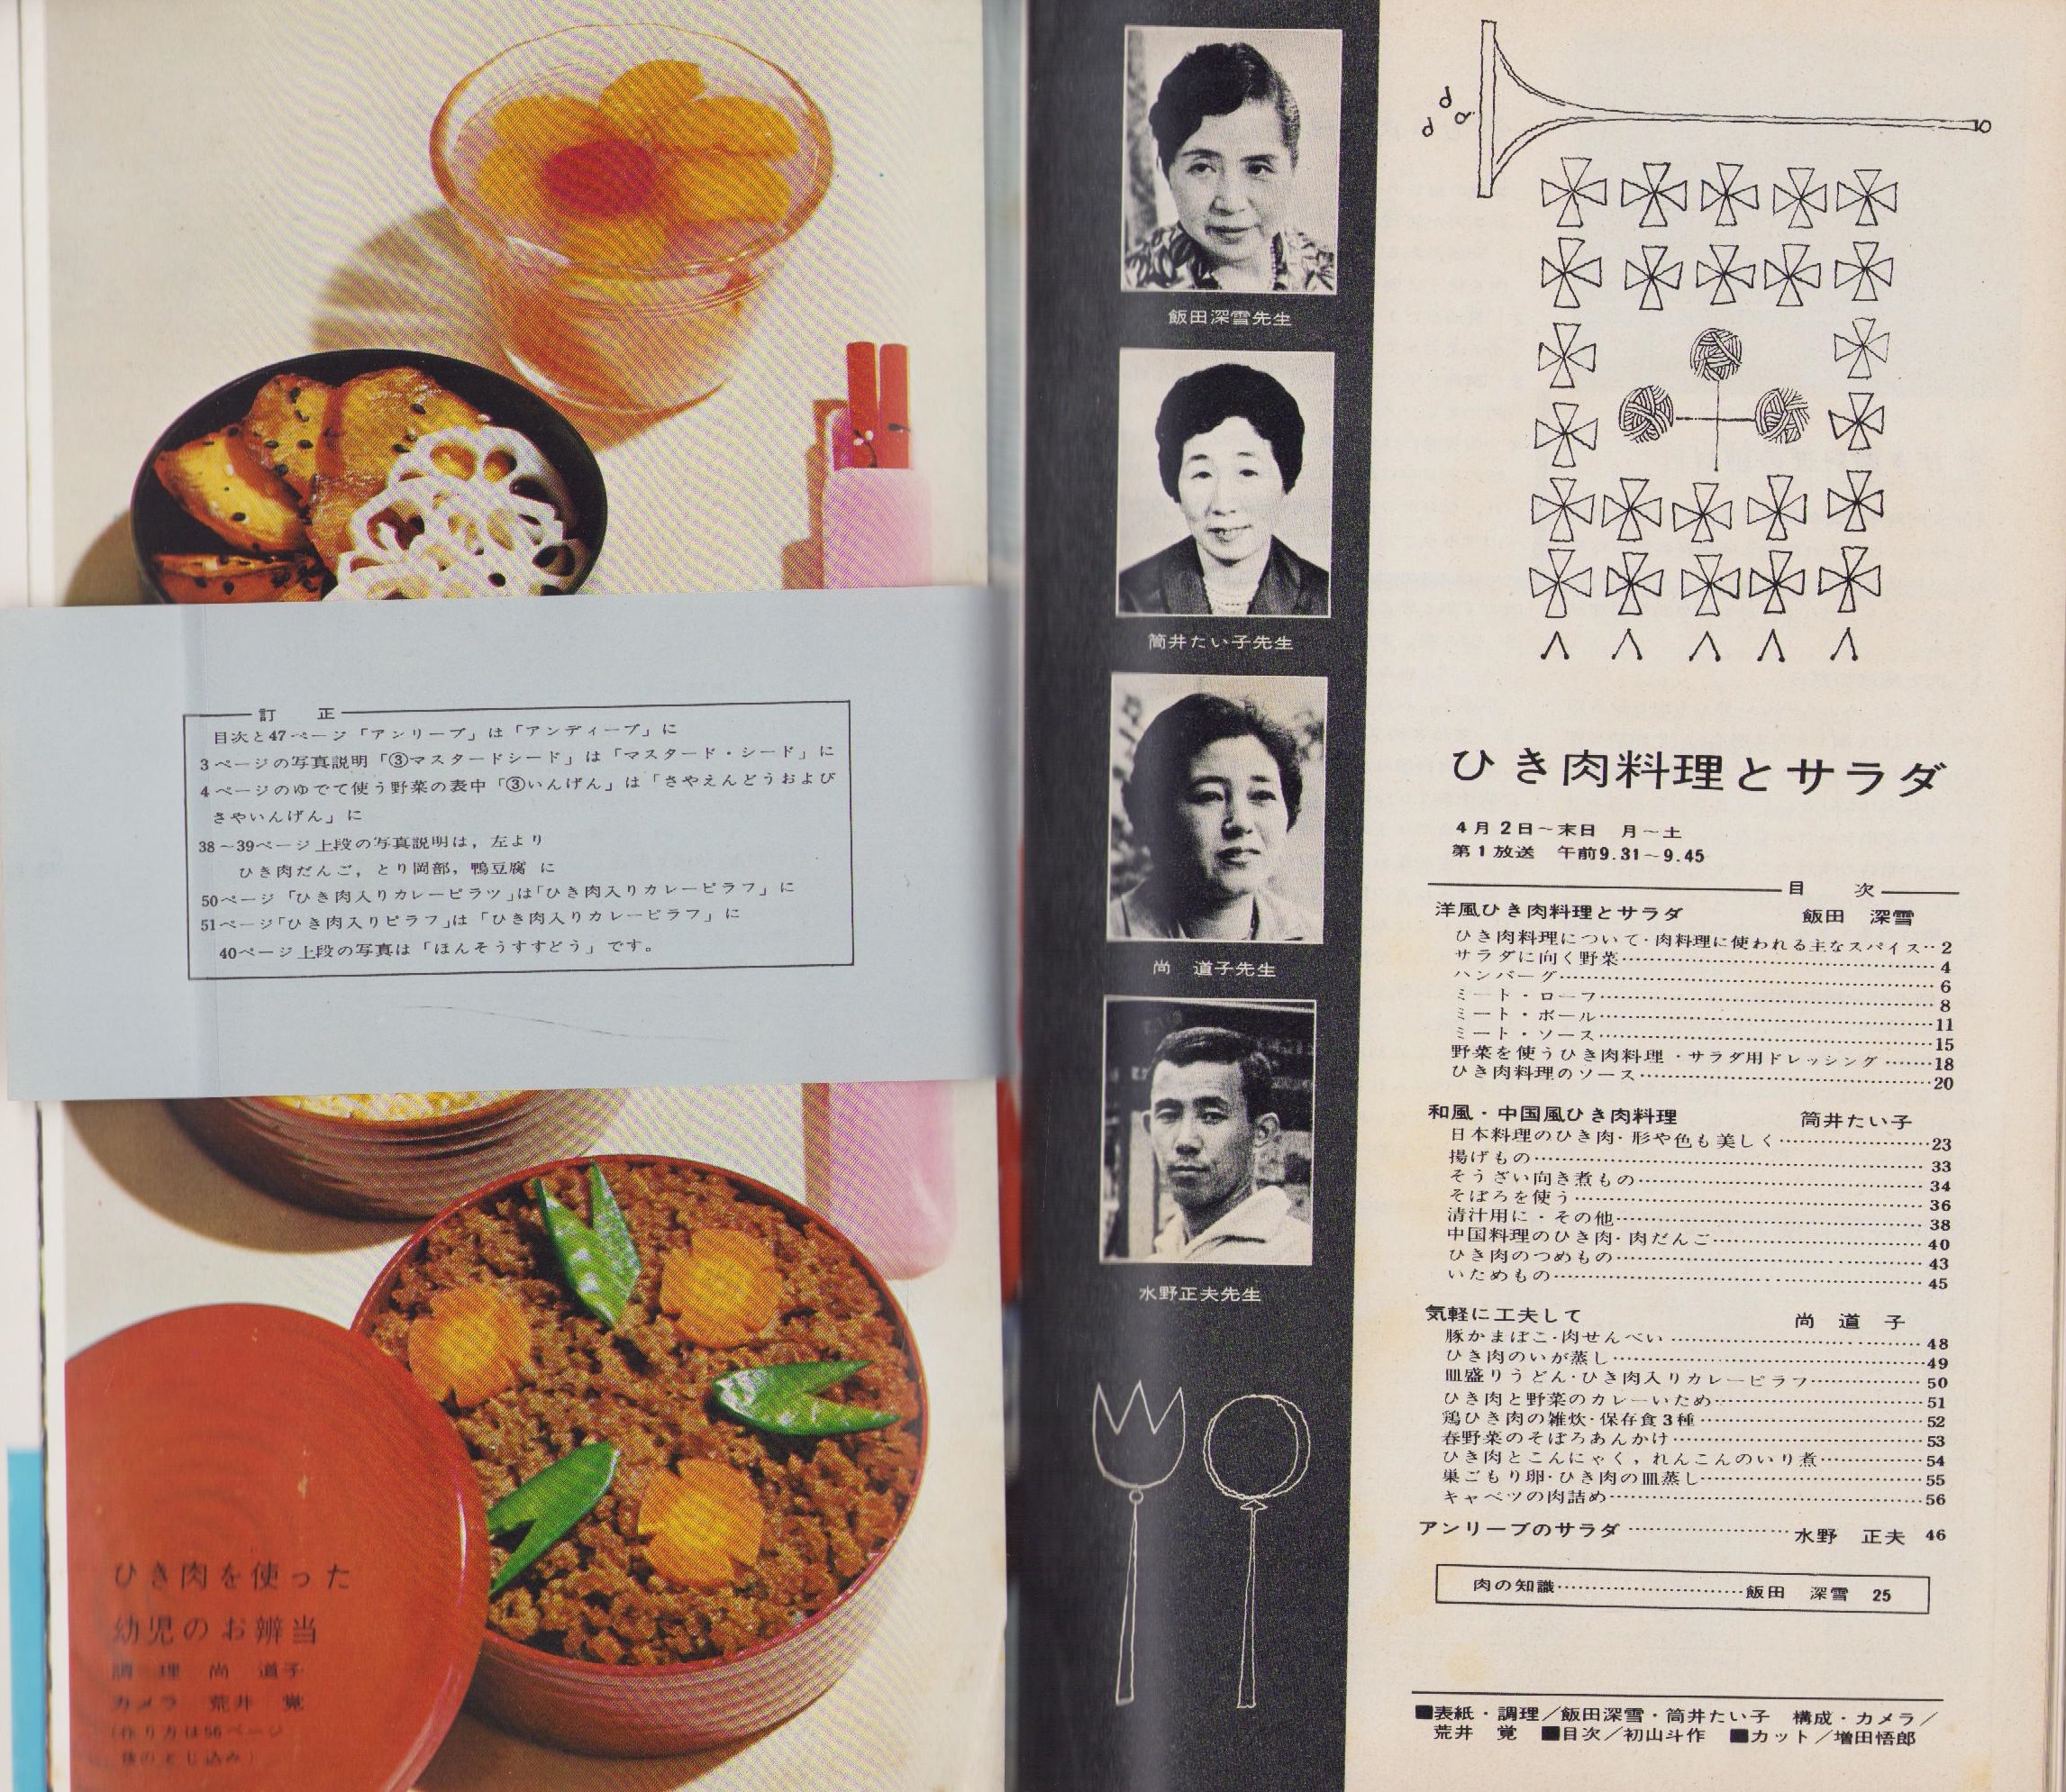 訂 正
目次と47ページ「アンリーブ」は「アンディーブ」に
3ページの写真説明「③マスタードシード」は「マスタード・シード」に
4ページのゆでて使う野菜の表中「③いんげん」は「さやえんどうおよび
さやいんげん」に
38~39ページ上段の写真説明は，左より
ひき肉だんご，とり岡部，鴨豆腐 に
50ページ「ひき肉入りカレーピラツ」は「ひき肉入りカレーピラフ」に
51ページ「ひき肉入りピラフ」は「ひき肉入りカレーピラフ」に
40ページ上段の写真は「ほんそうすすどう」です。
ひき肉を使った
幼児のお辨当
調 理 尚 道子
カメラ 荒井 覚
(作り方は56ページ
後のとじ込み)
飯田深雪先生
筒井たい子先生
尚 道子先生
水野正夫先生
ひき肉料理とサラダ
4月2日~末日 月~土
第1放送 午前9.31~9.45
目 次
洋風ひき肉料理とサラダ 飯田 深雪
ひき肉料理について・肉料理に使われる主なスパイス‥2
サラダに向く野菜……4
ハンバーグ……6
ミート・ローフ……8
ミート・ボール……11
ミート・ソース……15
野菜を使うひき肉料理・サラダ用ドレッシング……18
ひき肉料理のソース……20
和風・中国風ひき肉料理 筒井たい子
日本料理のひき肉・形や色も美しく……23
揚げもの……33
そうざい向き煮もの……34
そぼろを使う……36
清汁用に・その他……38
中国料理のひき肉・肉だんご……40
ひき肉のつめもの……43
いためもの……45
気軽に工夫して 尚 道 子
豚かまぼこ・肉せんべい……48
ひき肉のいが蒸し……49
皿盛りうどん・ひき肉入りカレーピラフ……50
ひき肉と野菜のカレーいため……51
鶏ひき肉の雑炊・保存食3種……52
春野菜のそぼろあんかけ……53
ひき肉とこんにゃく，れんこんのいり煮……54
巣ごもり卵・ひき肉の皿蒸し……55
キャベツの肉詰め……56
アンリーブのサラダ……水野 正夫 46
肉の知識……飯田 深雪 25
■表紙・調理／飯田深雪・筒井たい子 構成・カメラ／
荒井 覚 ■目次／初山斗作 ■カット／増田悟郎